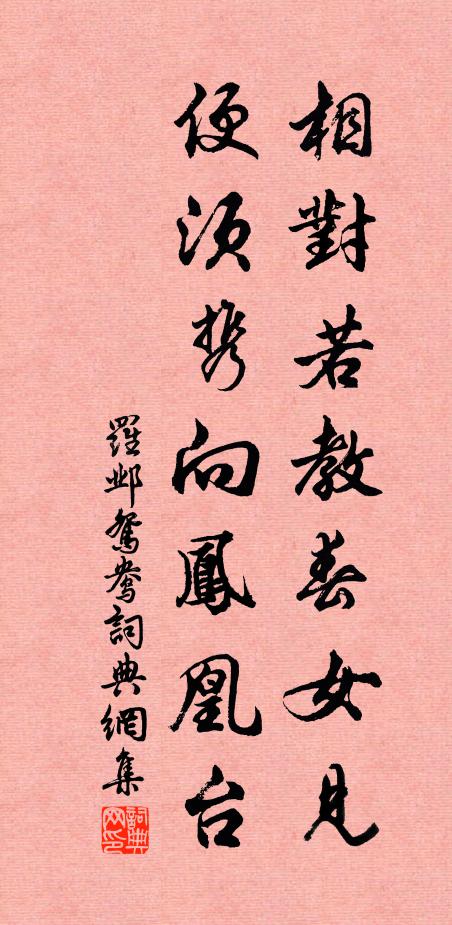 相對若教春女見
便須携向鳳凰台
羅邺鴛鴦詞典網集
詞典网印